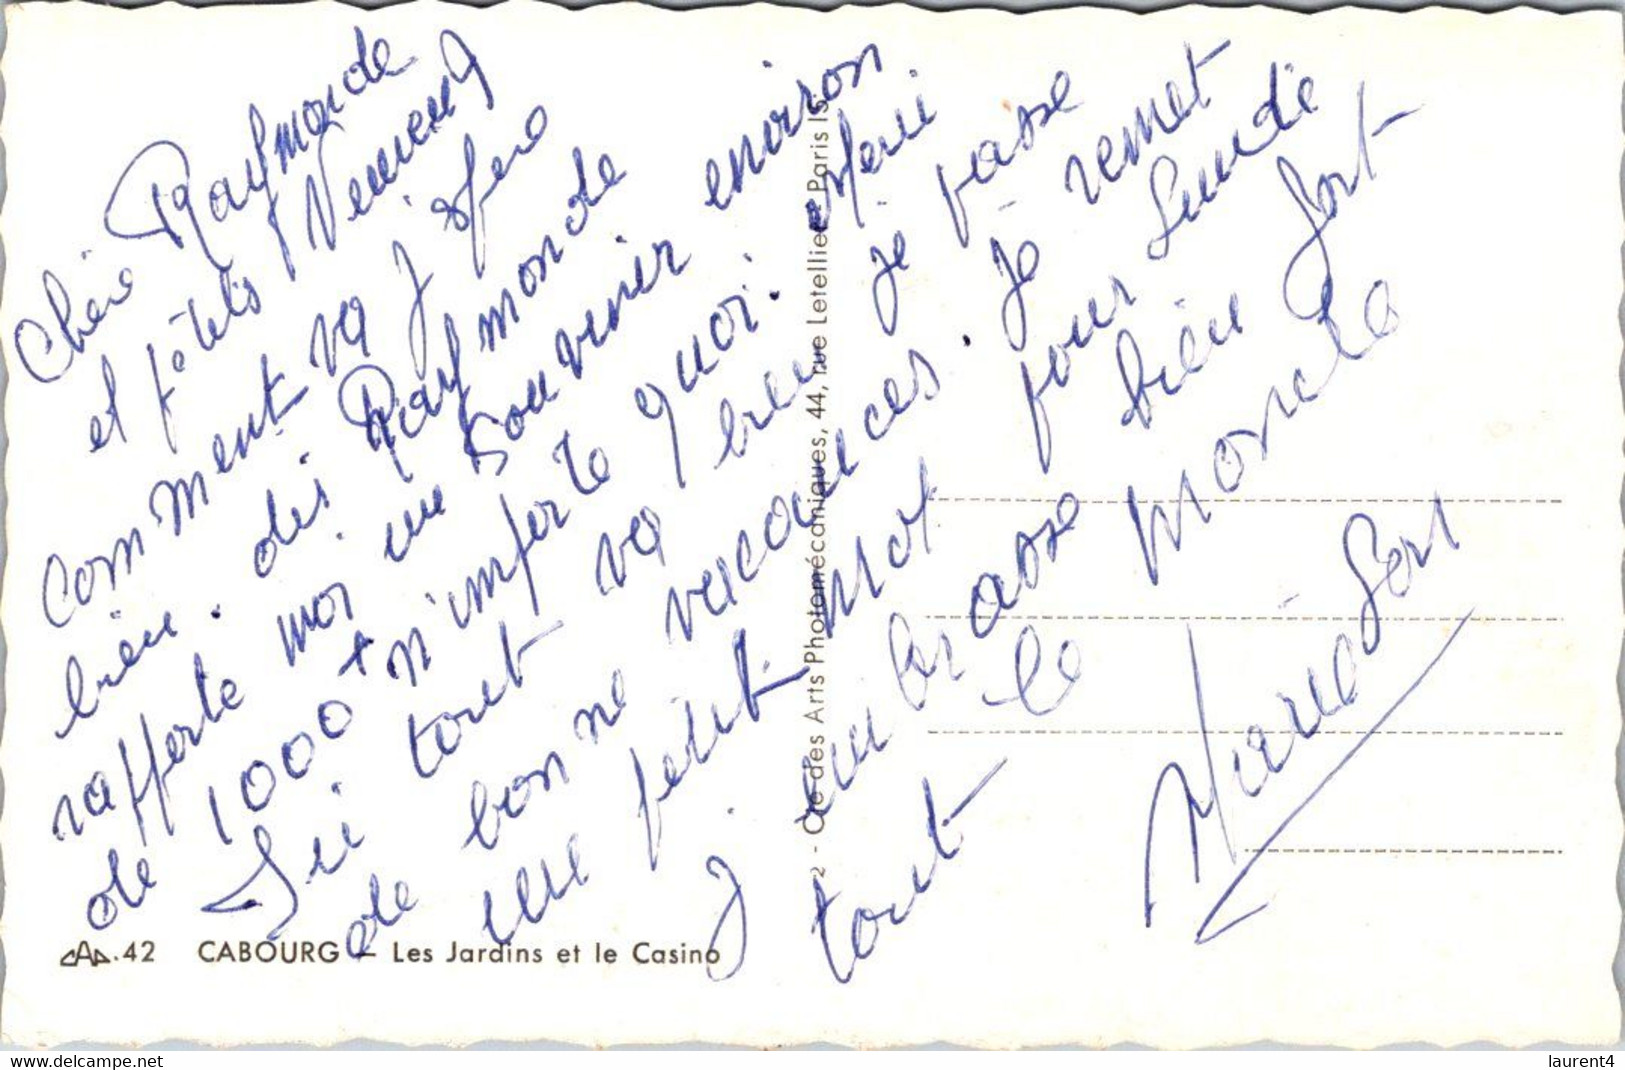 Chère Raymonde
et petits Neuneus
Comment va j spere
bien. dis Raymonde
rapporte moi un souvenir environ
de 1000 + n'imperte quoi. Meri
Ici tout va bien je passe
de bonne vacances. Je remet
un petit mot pour
j embrasse bien fort
tout le monde
CAP.42 CABOURG - Les Jardins et le Casino
2 - Cie des Arts Photomécaniques, 44, rue Letellier Paris 15
www.delcampe.net
laurent4